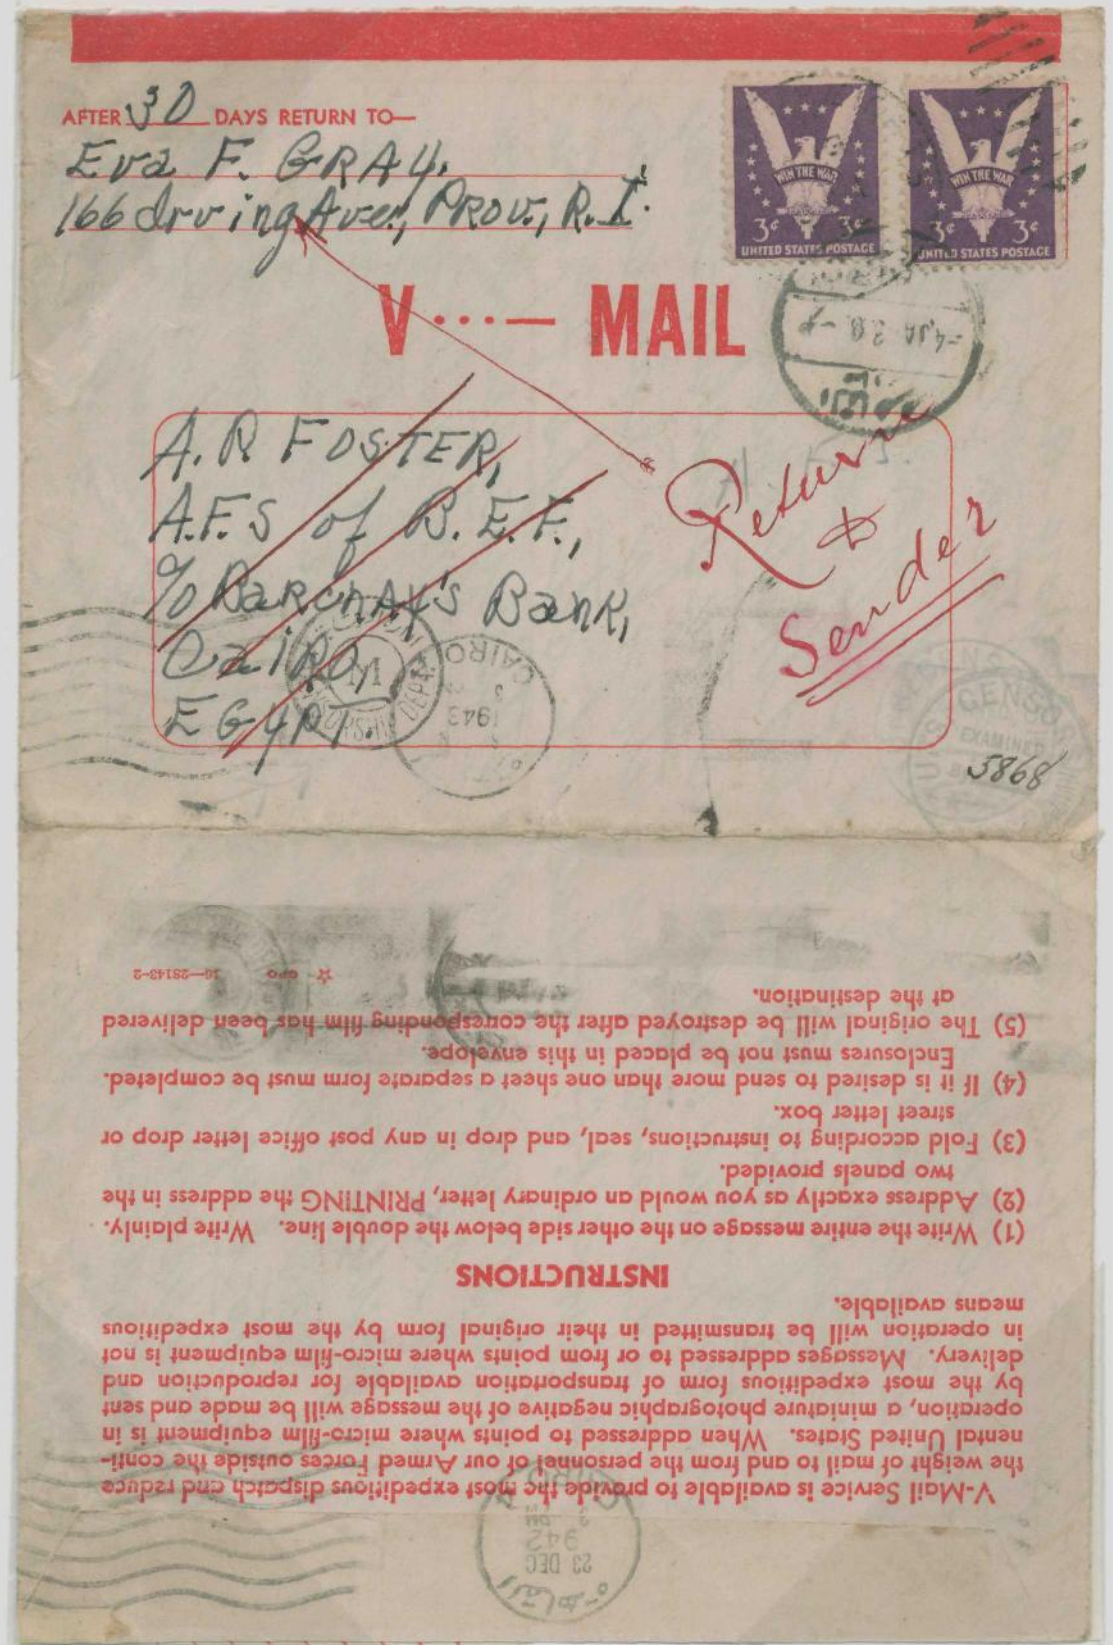 AFTER 30 DAYS RETURN TO—
Eva F. GRAY.
166 Irving Ave., PROV., R.I.
WIN THE WAR
3¢ 3¢
UNITED STATES POSTAGE
WIN THE WAR
3¢ 3¢
UNITED STATES POSTAGE
V···— MAIL
A.R FOSTER,
A.F.S of B.E.F.,
% BARCLAY'S BANK,
CAIRO,
EGYPT.
Return
to
Sender
CAIRO
1943
CENSOR
EXAMINED
5868
V-Mail Service is available to provide the most expeditious dispatch and reduce
the weight of mail to and from the personnel of our Armed Forces outside the conti-
nental United States. When addressed to points where micro-film equipment is in
operation, a miniature photographic negative of the message will be made and sent
by the most expeditious form of transportation available for reproduction and
delivery. Messages addressed to or from points where micro-film equipment is not
in operation will be transmitted in their original form by the most expeditious
means available.
INSTRUCTIONS
(1) Write the entire message on the other side below the double line. Write plainly.
(2) Address exactly as you would an ordinary letter, PRINTING the address in the
two panels provided.
(3) Fold according to instructions, seal, and drop in any post office letter drop or
street letter box.
(4) If it is desired to send more than one sheet a separate form must be completed.
Enclosures must not be placed in this envelope.
(5) The original will be destroyed after the corresponding film has been delivered
at the destination.
☆ GPO 16—28143-2
CAIRO
23 DEC
942